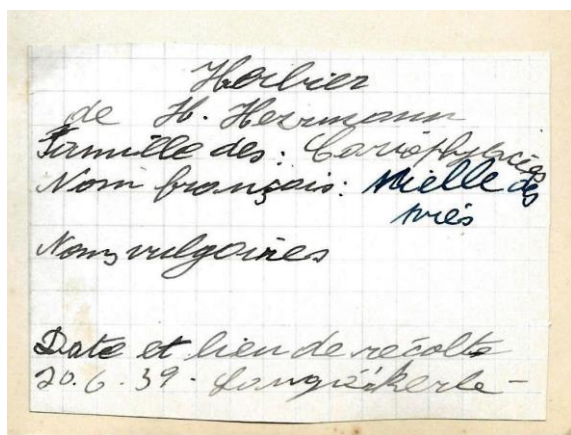 Herbier
de H. Herrmann
Famille des: Cariophylacées
Nom français: Nielle des
prés
Noms vulgaires
Date et lieu de récolte
20.6.39.